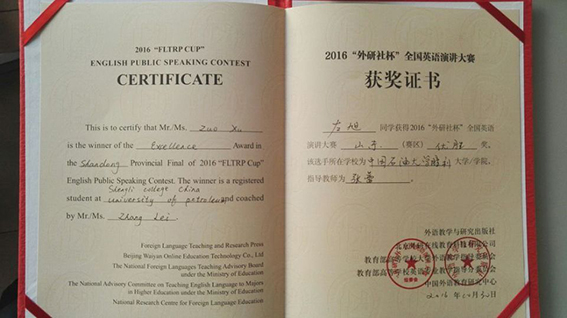 2016 “FLTRP CUP”
ENGLISH PUBLIC SPEAKING CONTEST
CERTIFICATE
This is to certify that Mr./Ms. Zuo Xu
is the winner of the Excellence Award in
the Shandong Provincial Final of 2016 “FLTRP Cup”
English Public Speaking Contest. The winner is a registered
Shengli college China
student at university of petroleum and coached
by Mr./Ms. Zhang Lei.
Foreign Language Teaching and Research Press
Beijing Waiyan Online Education Technology Co., Ltd
The National Foreign Languages Teaching Advisory Board
under the Ministry of Education
The National Advisory Committee on Teaching English to Majors
in Higher Education under the Ministry of Education
National Research Centre for Foreign Language Education
2016 “外研社杯”全国英语演讲大赛
获奖证书
左旭 同学获得2016“外研社杯”全国英语
演讲大赛 山东 (赛区) 优胜 奖。
该选手所在学校为中国石油大学胜利大学/学院,
指导教师为 张蕾 。
外语教学与研究出版社
教育部高等学校大学外语教学指导委员会
教育部高等学校英语专业教学指导分委员会
中国外语教育研究中心